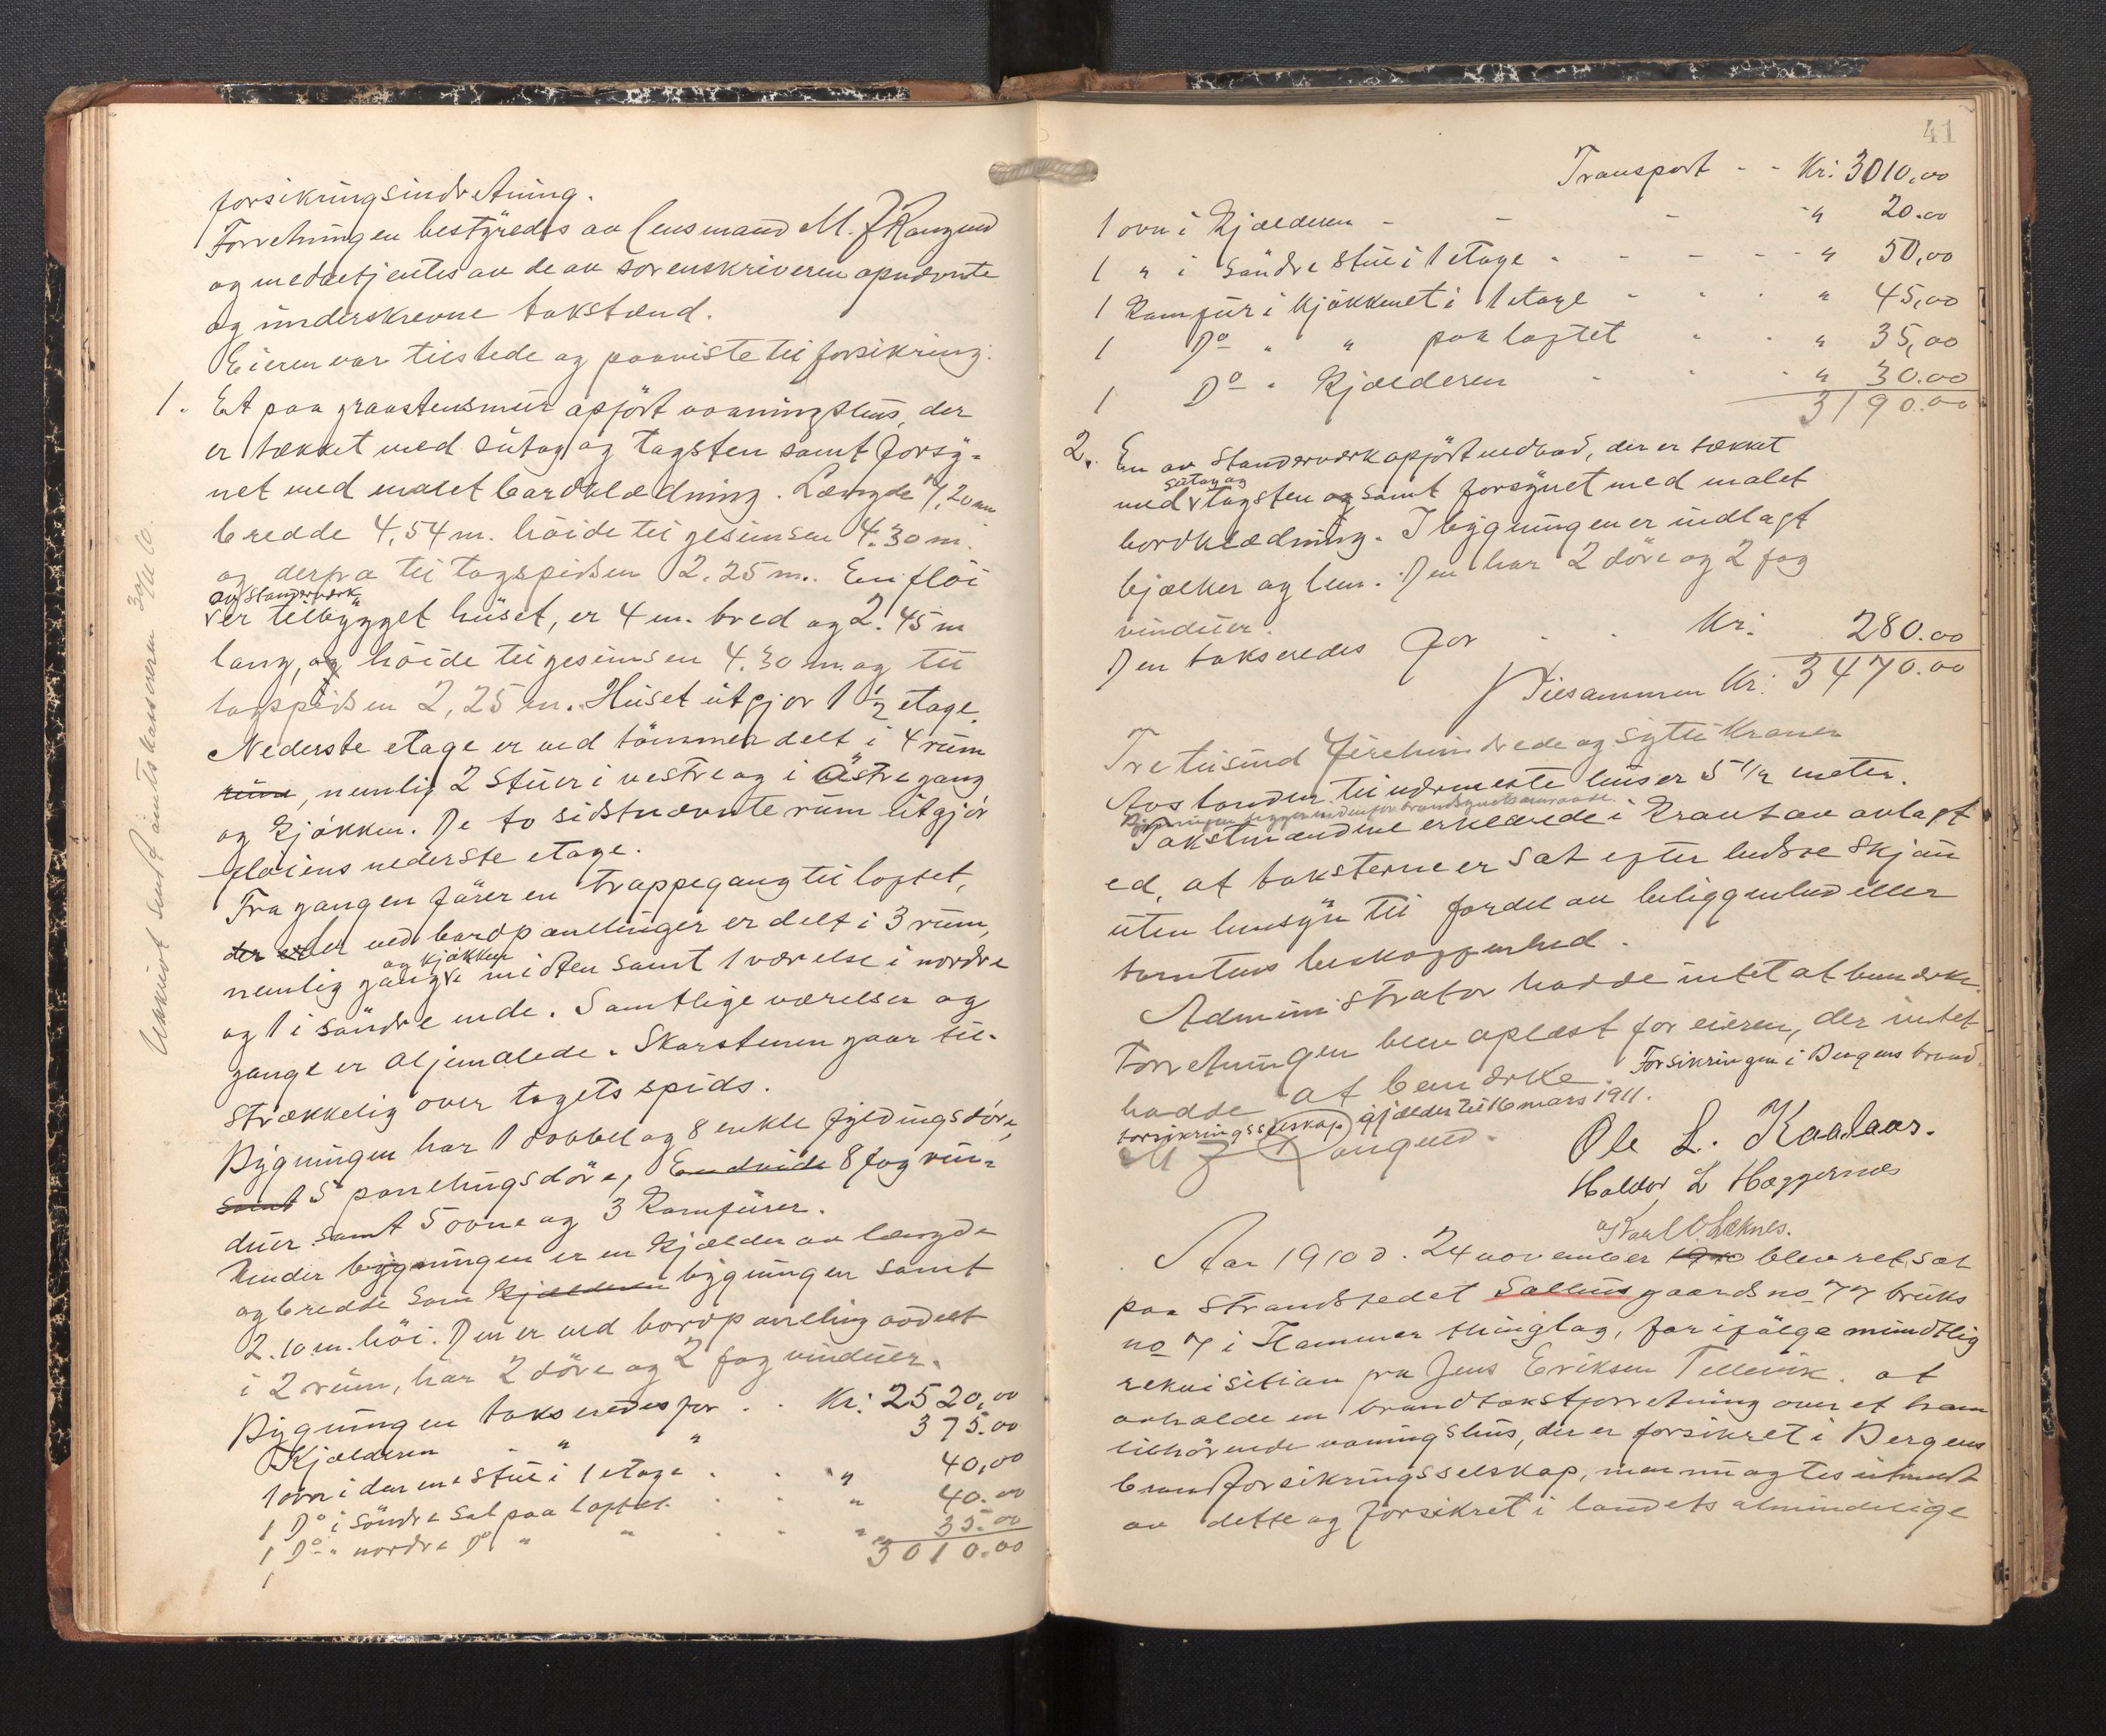 forsikringsindretning.
Forretningen bestyredes av lensmand M. J. Rangund
og medbetjentes av de av sorenskriveren opnævnte
og underskrevne takstmænd.
Eieren var tilstede og paaviste til forsikring:
1. Et paa graastensmur opført vaaningshus, der
er tækket med sutag og tagsten samt forsy-
net med malet bordklædning. Længde 7,20 m
bredde 4,54 m. høide til gesimsen 4.30 m.
og derfra til tagspidsen 2.25 m. En fløi
av Standerværk
er tilbygget huset, er 4 m. bred og 2.45 m
lang, og høide til gesimsen 4.30 m og til
tagspidsen 2,25 m. Huset utgjør 1 1/2 etage.
Nederste etage er ved tømmer delt i 4 rum
rum, nemlig 2 Stuer i vestre og i Østre gang
og Kjøkken. De to sidstnævnte rum utgjør
fløiens nederste etage.
Fra gangen fører en trappegang til loftet,
der er ved bordpanelinger er delt i 3 rum,
og kjøkken
nemlig gang i midten samt 1 værelse i nordre
og 1 i søndre ende. Samtlige værelser og
gange er oljemalede. Skorstenen gaar til-
strækkelig over tagets spids.
Bygningen har 1 dobbel og 8 enkle fyldingsdøre,
samt 5 panelingsdøre, Endvide 8 fag vin-
duer samt 5 ovne og 3 Komfurer.
Under bygningen er en Kjælder av længde
og bredde som Kjælderen bygningen samt
2.10 m. høi. Den er ved bordpaneling avdelt
i 2 rum, har 2 døre og 2 fag vinduer.
Bygningen takseredes for . . Kr: 2520,00
Kjælderen - " " 375.00
1 ovn i den ene Stue i 1 etage . . " 40,00
1 Do i Søndre Sal paa loftet . . " 40.00
1 Do " nordre Do " " . . " 35.00
3010.00
Utskrivt sendt amtskasseren 30/11 10.
41
Transport - - Kr: 3010,00
1 ovn i Kjælderen - - - - " 20.00
1 " i Søndre Stue i 1 etage - - - - " 50,00
1 Komfur i Kjøkkenet i 1 etage - . . " 45,00
1 Do " " paa loftet . . " 35,00
1 Do " Kjælderen - . . " 30.00
3190.00
2. En av Standerværk opført nedbod, der er tækket
sutag og
med tagsten og samt forsynet med malet
bordklædning. I bygningen er indlagt
bjælker og lem. Den har 2 døre og 2 fag
vinduer.
Den takseredes for . . Kr: 280.00
Tilsammen Kr: 3470.00
Tre tusind firehundrede og sytti Kroner
Avstanden til nærmeste hus er 5 1/2 meter.
Bygningen ligger indenfor brandsynets omraade.
Takstmændene erklærede i Kraft av avlagt
ed, at taksterne er sat efter bedste Skjøn
uten hensyn til fordel av beliggenhed eller
tomtens beskaffenhed.
Administrator hadde intet at bemærke.
Forretningen blev oplæst for eieren, der intet
hadde at bemærke. Forsikringen i Bergens brand-
forsikringsselskap gjælder til 16 mars 1911.
M J Rangund.
Ole L. Kaalaas.
Haldor L Hæggernes
og Karl O. Leknes.
Aar 1910 d. 24 november 1910 blev ret sat
paa Strandstedet Salhus gaards no 77 bruks
no 7 i Hammer thinglag, for ifølge mundtlig
rekvisition fra Jens Eriksen Tellevik at
avholde en brandtakstforretning over et ham
tilhørende vaaningshus, der er forsikret i Bergens
brandforsikringsselskap, men nu agtes utmeldt
av dette og forsikret i landets almindelige